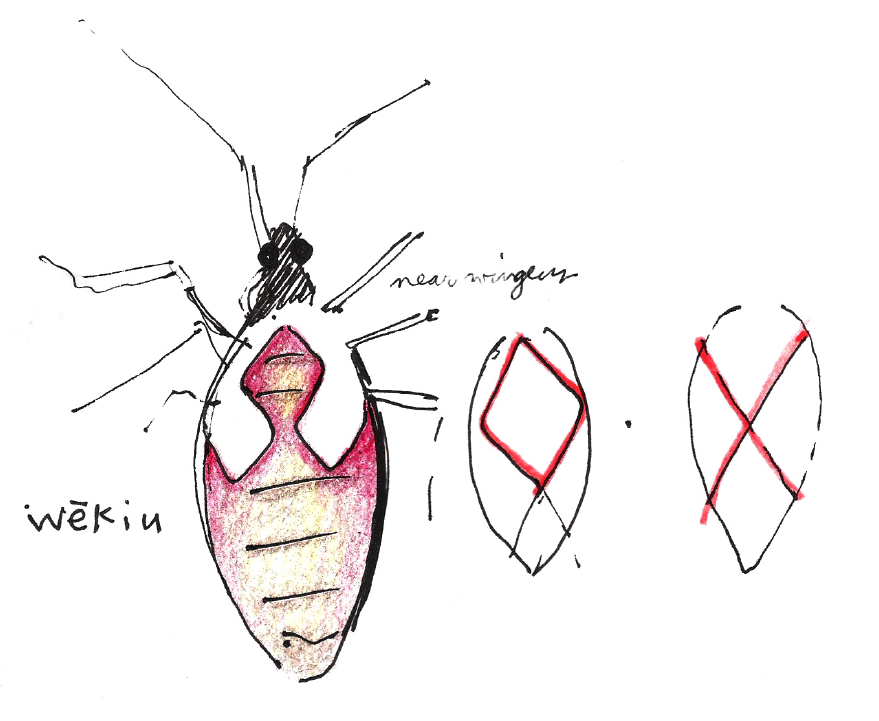 near wingless
wēkiu